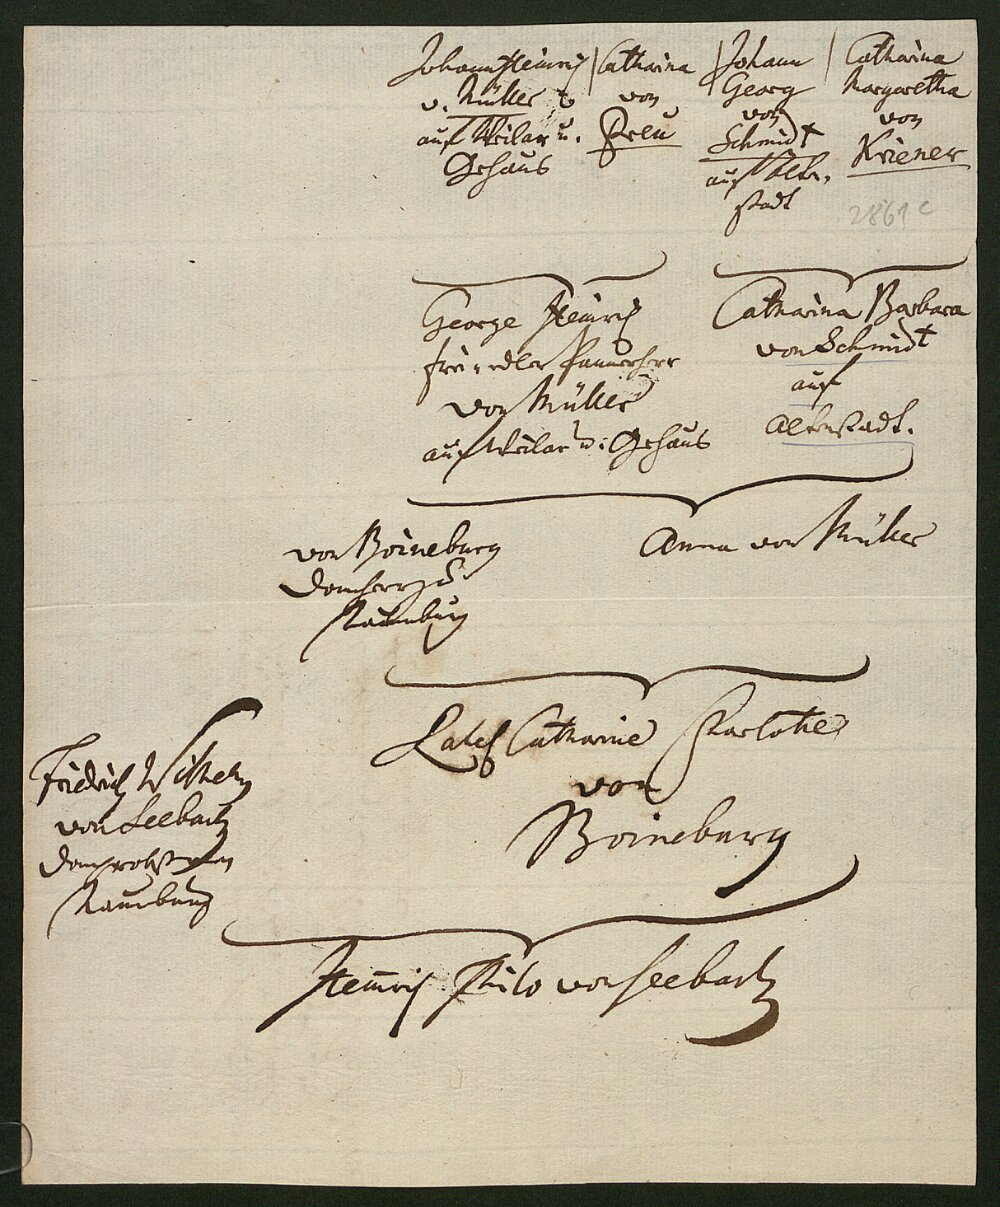 Johann Heinrich
v. Müller
auf Weilar u.
Gehaus
Catharina
von
Preu
Johann
Georg
von
Schmidt
auf Alten-
stadt
Catharina
Margaretha
von
Kriener
2861 c
George Heinrich
frei, edler Pannerherr
von Müller
auf Weilar u. Gehaus
Catharina Barbara
von Schmidt
auf
Altenstadt.
von Boineburg
Domherr zu
Naumburg
Anna von Müller
Catharine Charlotte
von
Boineburg
Fridrich Wilhelm
von Seebach
Domprobst
Naumburg
Heinrich Thilo von Seebach